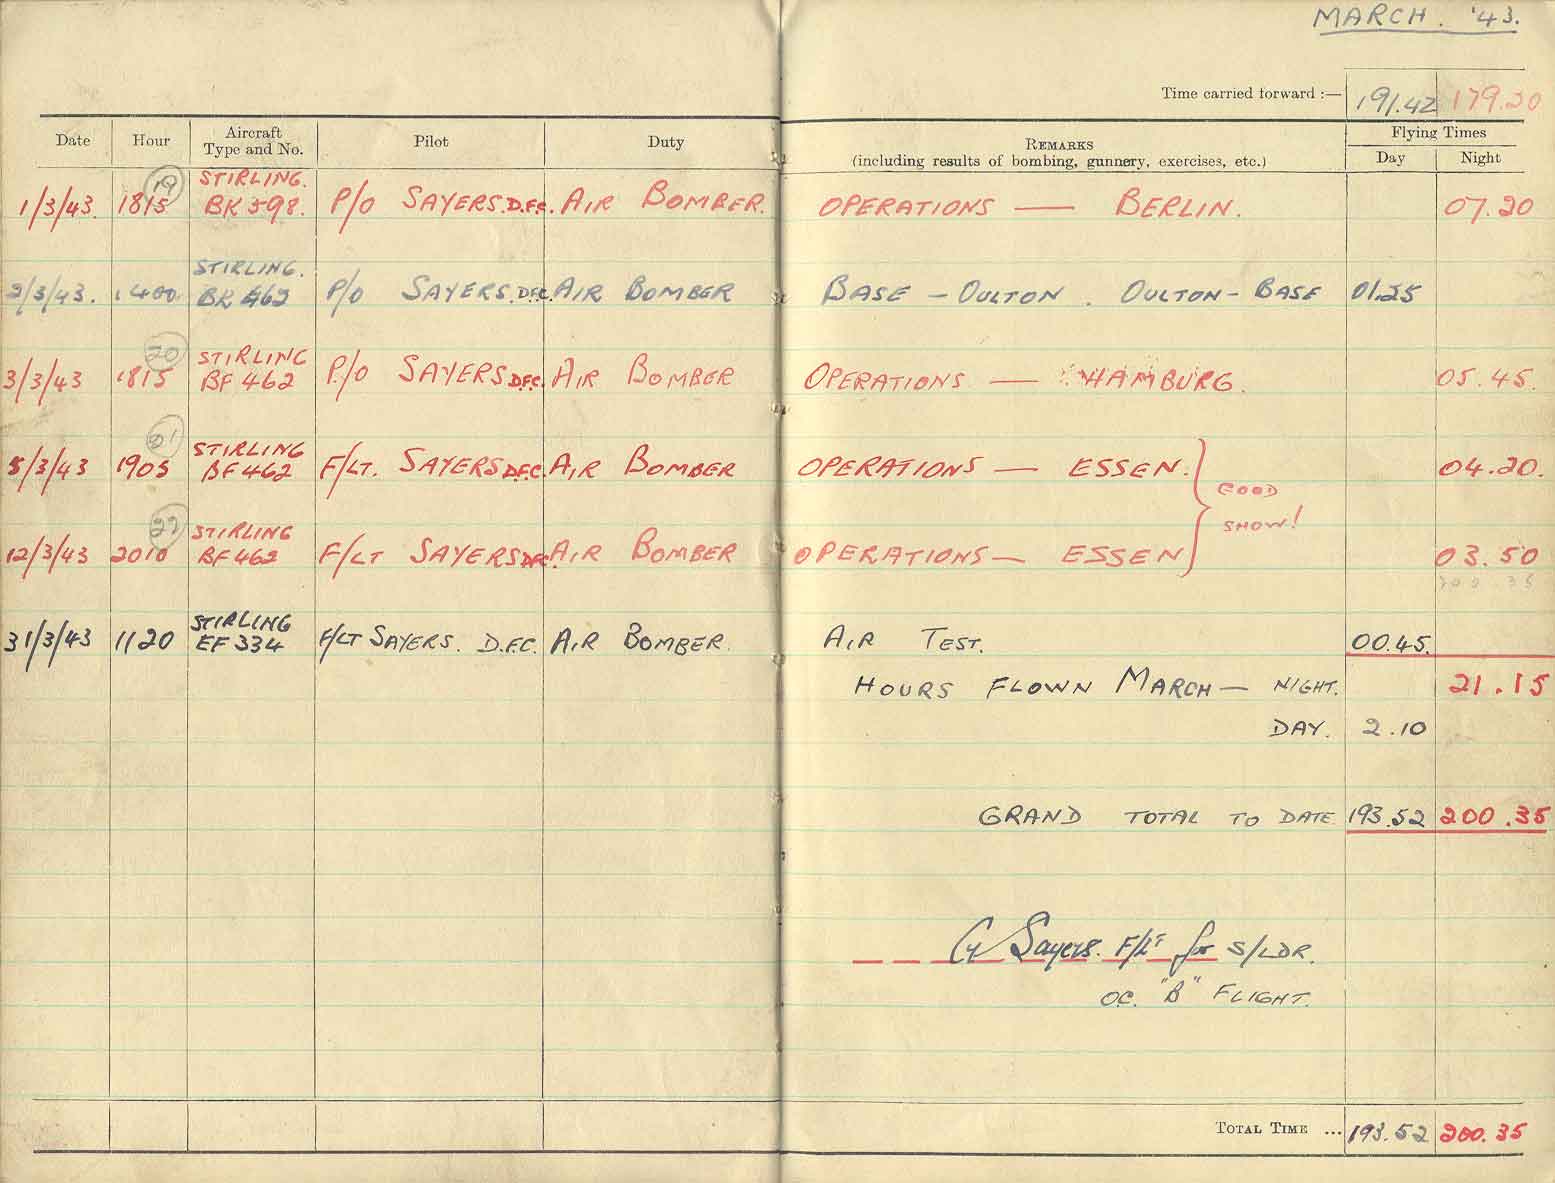 MARCH. '43.
Time carried forward :— 191.42 179.20
Date Hour Aircraft Type and No. Pilot Duty REMARKS (including results of bombing, gunnery, exercises, etc.) Flying Times Day Night
1/3/43. 1815 19 STIRLING. BK 598. P/O SAYERS. D.F.C. AIR BOMBER. OPERATIONS — BERLIN. 07.20
2/3/43. 1400 STIRLING. BK 462 P/O SAYERS. D.F.C. AIR BOMBER BASE – OULTON . OULTON – BASE 01.25
3/3/43 1815 20 STIRLING BF 462 P/O SAYERS D.F.C. AIR BOMBER OPERATIONS — HAMBURG. 05.45.
5/3/43 1905 21 STIRLING BF 462 F/LT. SAYERS D.F.C. AIR BOMBER OPERATIONS — ESSEN. 04.20.
GOOD
SHOW!
12/3/43 2010 22 STIRLING BF 462 F/LT SAYERS DFC. AIR BOMBER OPERATIONS — ESSEN 03.50
200.35
31/3/43 1120 STIRLING EF 334 F/LT SAYERS. D.F.C. AIR BOMBER. AIR TEST. 00.45.
HOURS FLOWN MARCH — NIGHT. 21.15
DAY. 2.10
GRAND TOTAL TO DATE 193.52 200.35
Sayers. F/Lt for S/LDR.
O.C. "B" FLIGHT.
TOTAL TIME ... 193.52 200.35